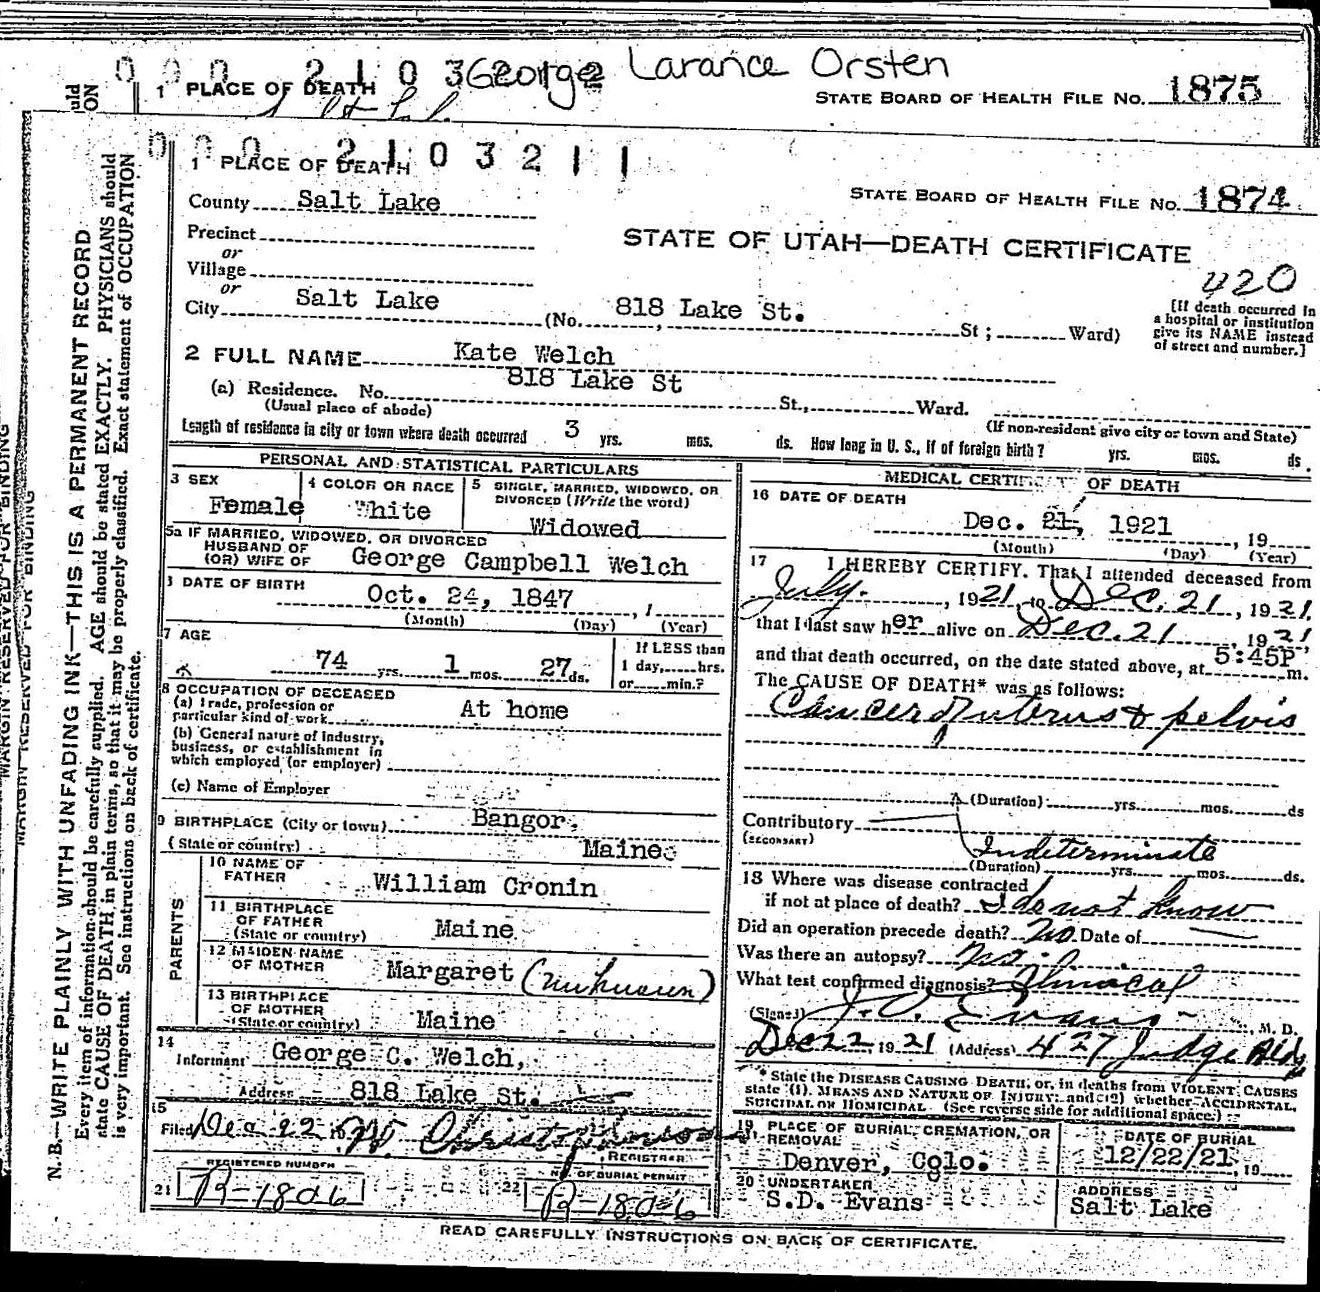 0 0 0 2 1 0 3 George Larance Orsten
1 PLACE OF DEATH
STATE BOARD OF HEALTH FILE No. 1875
0 0 0 2 1 0 3 2 1 1
1 PLACE OF DEATH
STATE BOARD OF HEALTH FILE No. 1874
County Salt Lake
STATE OF UTAH—DEATH CERTIFICATE
Precinct
or
Village
or
420
City Salt Lake (No. 818 Lake St. St; Ward)
[If death occurred in
a hospital or institution
give its NAME instead
of street and number.]
2 FULL NAME Kate Welch
(a) Residence. No. 818 Lake St St., Ward.
(Usual place of abode)
(If non-resident give city or town and State)
Length of residence in city or town where death occurred 3 yrs. mos. ds. How long in U. S., if of foreign birth? yrs. mos. ds.
PERSONAL AND STATISTICAL PARTICULARS
3 SEX
Female
4 COLOR OR RACE
White
5 SINGLE, MARRIED, WIDOWED, OR
DIVORCED (Write the word)
Widowed
5a IF MARRIED, WIDOWED, OR DIVORCED
HUSBAND OF
(OR) WIFE OF George Campbell Welch
DATE OF BIRTH
Oct. 24, 1847, 1
(Month) (Day) (Year)
7 AGE
74 yrs. 1 mos. 27 ds.
If LESS than
1 day, hrs.
or min.?
8 OCCUPATION OF DECEASED
(a) Trade, profession or
particular kind of work At home
(b) General nature of Industry,
business, or establishment in
which employed (or employer)
(c) Name of Employer
9 BIRTHPLACE (City or town) Bangor,
(State or country) Maine
PARENTS
10 NAME OF
FATHER William Cronin
11 BIRTHPLACE
OF FATHER
(State or country) Maine
12 MAIDEN NAME
OF MOTHER Margaret (unknown)
13 BIRTHPLACE
OF MOTHER
(State or country) Maine
14
Informant George C. Welch,
Address 818 Lake St.
15
Filed Dec 22 19 W Christopherson
REGISTRAR
REGISTERED NUMBER
21 R-1806
NO. OF BURIAL PERMIT
22 R-1806
MEDICAL CERTIFICATE OF DEATH
16 DATE OF DEATH
Dec. 21, 1921, 19
(Month) (Day) (Year)
17 I HEREBY CERTIFY. That I attended deceased from
July., 1921, to Dec. 21, 1921,
that I last saw her alive on Dec. 21, 1921,
and that death occurred, on the date stated above, at 5:45P m.
The CAUSE OF DEATH* was as follows:
Cancer of uterus & pelvis
(Duration) yrs. mos. ds
Contributory
(SECONDARY)
Indeterminate
(Duration) yrs. mos. ds.
18 Where was disease contracted
if not at place of death? I do not know
Did an operation precede death? No Date of
Was there an autopsy? No.
What test confirmed diagnosis? Clinical
(Signed) J. C. Evans, M. D.
Dec 22 1921 (Address) 427 Judge Bldg
* State the DISEASE CAUSING DEATH, or, in deaths from VIOLENT CAUSES
state (1). MEANS AND NATURE OF INJURY: and (2) whether ACCIDENTAL,
SUICIDAL OR HOMICIDAL. (See reverse side for additional space.)
19 PLACE OF BURIAL, CREMATION, OR
REMOVAL
Denver, Colo.
DATE OF BURIAL
12/22/21, 19
20 UNDERTAKER
S.D. Evans
ADDRESS
Salt Lake
READ CAREFULLY INSTRUCTIONS ON BACK OF CERTIFICATE.
MARGIN RESERVED FOR BINDING
N. B.—WRITE PLAINLY WITH UNFADING INK—THIS IS A PERMANENT RECORD
Every item of information should be carefully supplied. AGE should be stated EXACTLY. PHYSICIANS should
state CAUSE OF DEATH in plain terms, so that it may be properly classified. Exact statement of OCCUPATION
is very important. See instructions on back of certificate.